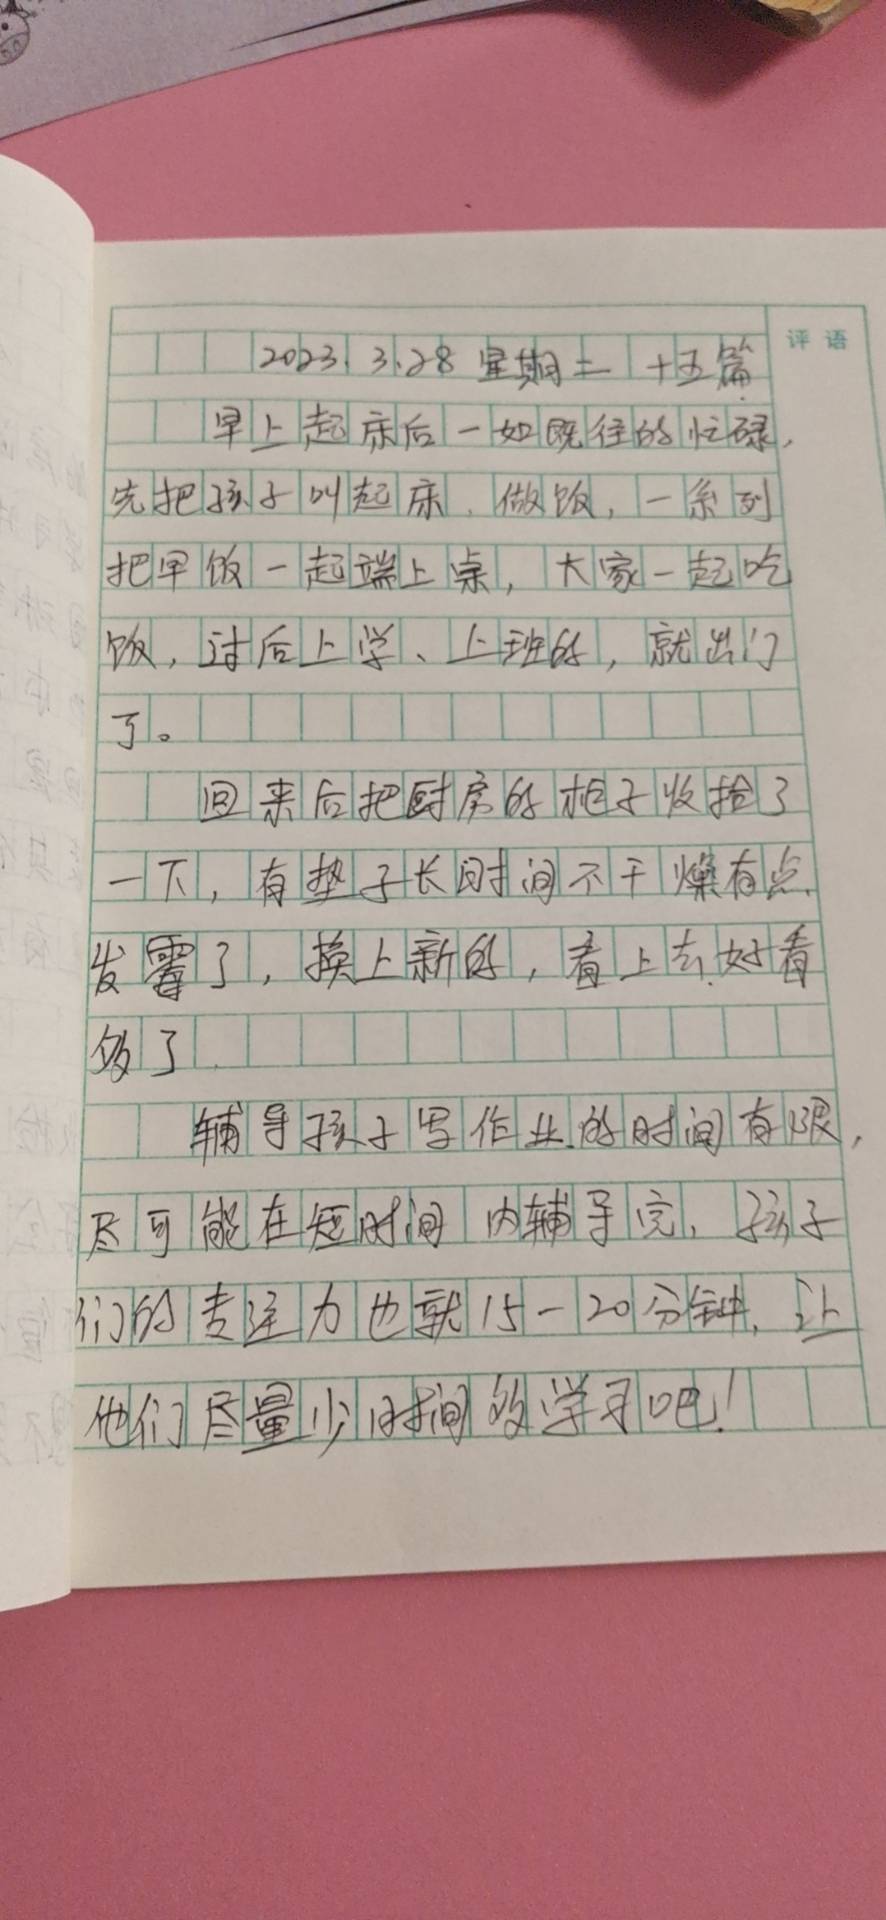 评语
2023.3.28 星期二 十五篇
早上起床后一如既往的忙碌,
先把孩子叫起床,做饭,一系列
把早饭一起端上桌,大家一起吃
饭,过后上学、上班的,就出门
了。
回来后把厨房的柜子收捡了
一下,有垫子长时间不干燥有点
发霉了,换上新的,看上去好看
多了
辅导孩子写作业的时间有限,
尽可能在短时间内辅导完,孩子
们的专注力也就15-20分钟,让
他们尽量少时间的学习吧!